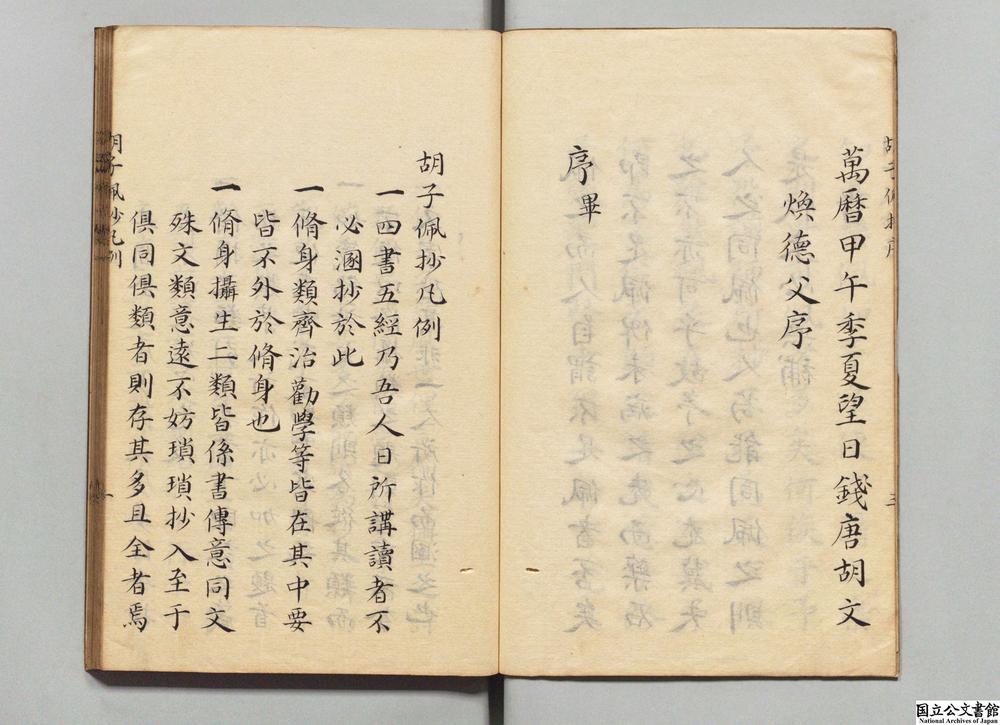 萬曆甲午季夏望日錢唐胡文
煥德父序
序畢
胡子佩抄凡例
一四書五經乃吾人日所講讀者不
必溷抄於此
一脩身類齊治勸學等皆在其中要
皆不外於脩身也
一脩身攝生二類皆係書傳意同文
殊文類意遠不妨瑣瑣抄入至于
俱同俱類者則存其多且全者焉
胡子佩抄凡例
国立公文書館
National Archives of Japan